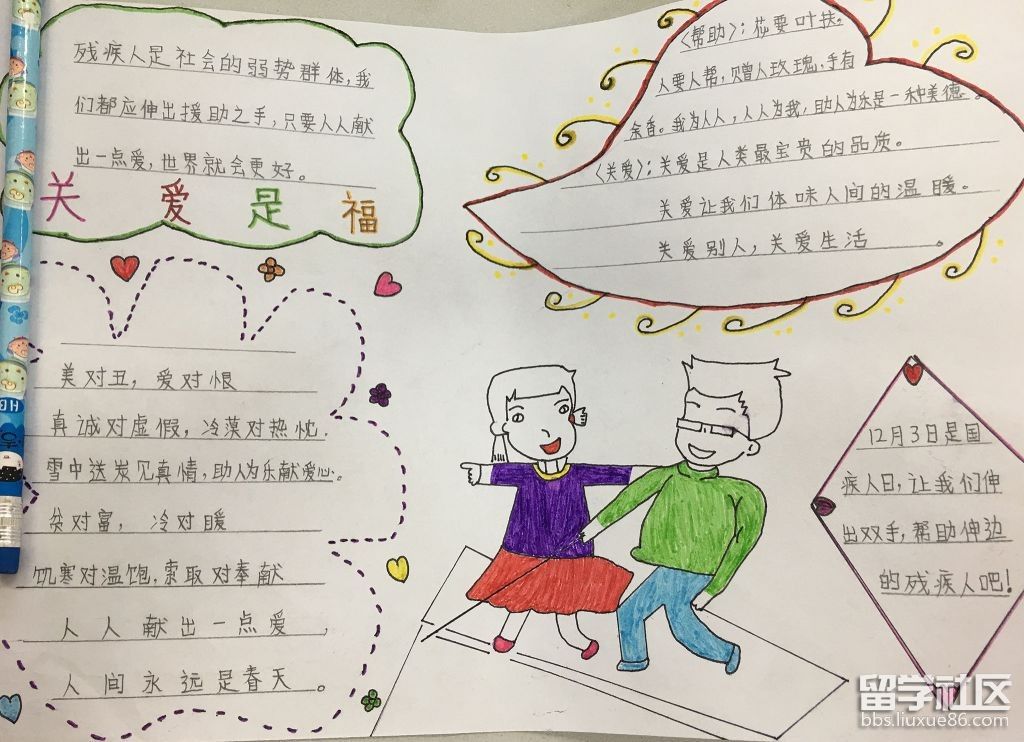 残疾人是社会的弱势群体，我
们都应伸出援助之手，只要人人献
出一点爱，世界就会更好。
关 爱 是 福
〈帮助〉：花要叶扶。
人要人帮，赠人玫瑰，手有
余香。我为人人，人人为我，助人为乐是一种美德。
〈关爱〉：关爱是人类最宝贵的品质。
关爱让我们体味人间的温暖。
关爱别人，关爱生活。
美对丑，爱对恨
真诚对虚假，冷漠对热忱，
雪中送炭见真情，助人为乐献爱心。
贫对富，冷对暖
饥寒对温饱，索取对奉献
人人献出一点爱，
人间永远是春天。
12月3日是国
疾人日，让我们伸
出双手，帮助伸边
的残疾人吧！
HB
留学社区
bbs.liuxue86.com